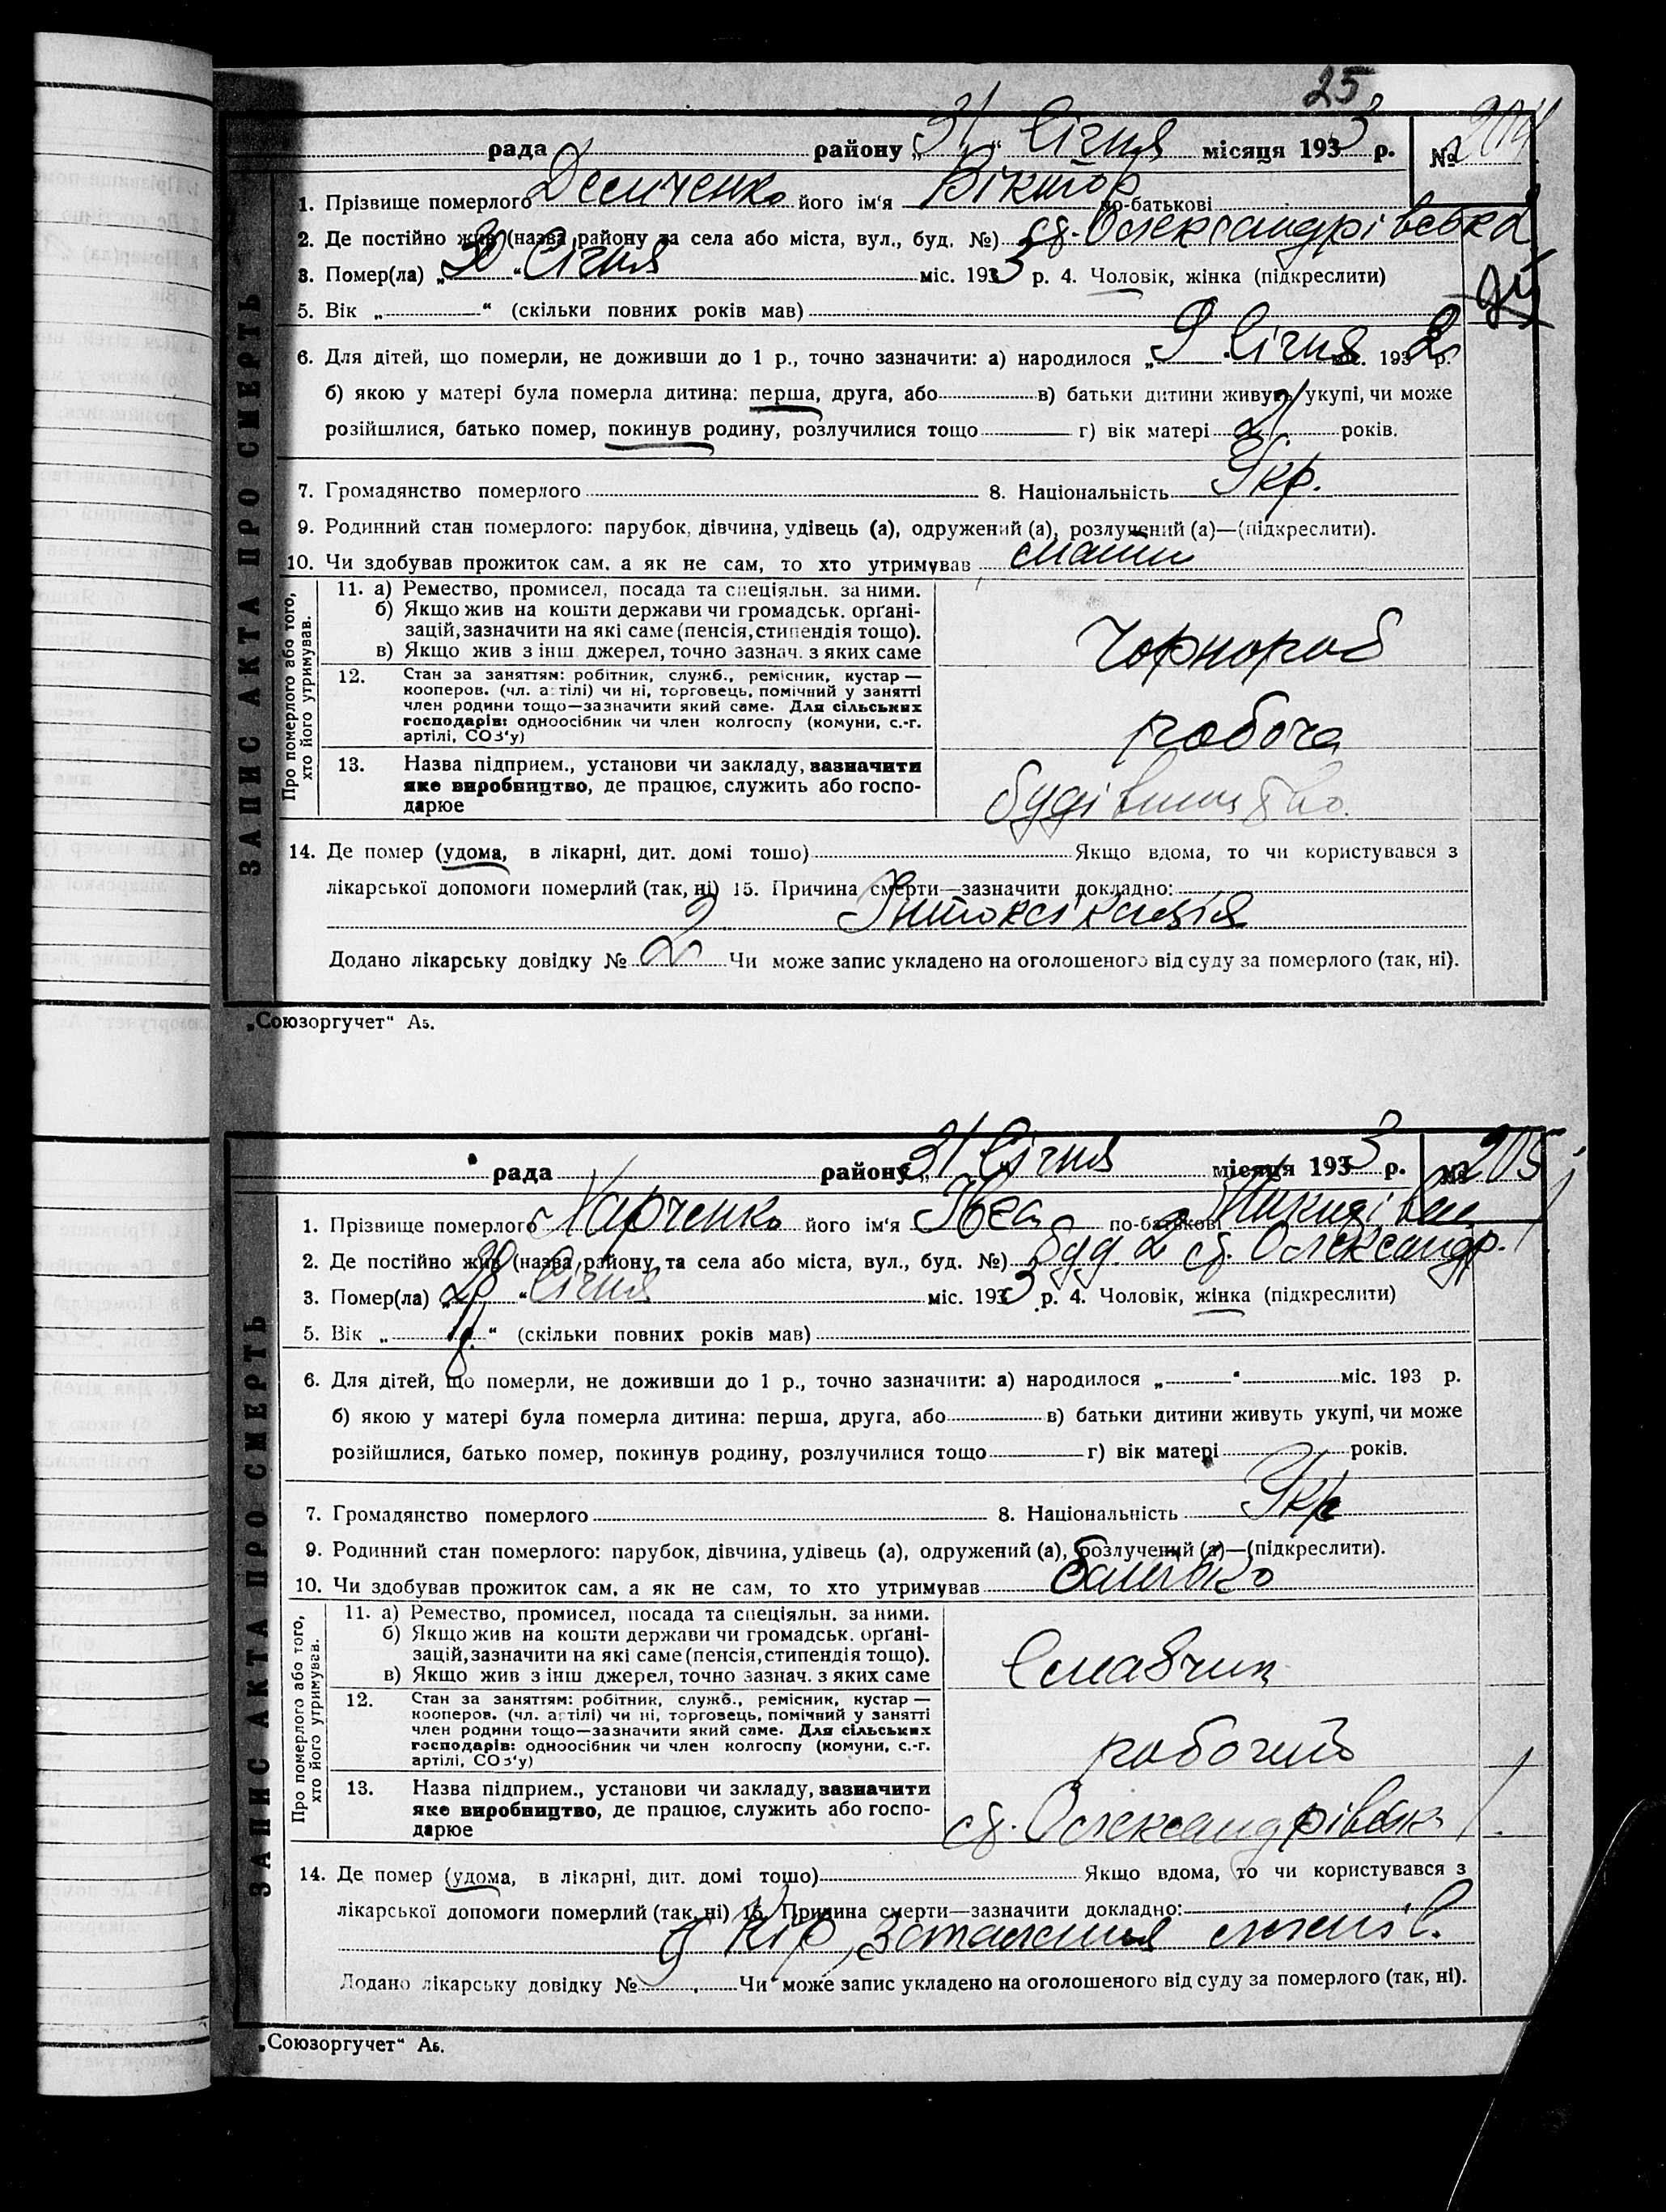 25
рада району „31“ Січня місяця 1933 р. № 204
1. Прізвище померлого Демченко його ім'я Віктор по-батькові
2. Де постійно жив (назва району та села або міста, вул., буд. №) ст. Олександрівська
3. Помер(ла) „30“ Січня міс. 1933 р. 4. Чоловік, жінка (підкреслити)
5. Вік „ “ (скільки повних років мав)
6. Для дітей, що померли, не доживши до 1 р., точно зазначити: а) народилося „9 Січня міс. 193 р.
б) якою у матері була померла дитина: перша, друга, або в) батьки дитини живуть укупі, чи може
розійшлися, батько помер, покинув родину, розлучилися тощо г) вік матері 21 років.
7. Громадянство померлого 8. Національність Укр.
9. Родинний стан померлого: парубок, дівчина, удівець (а), одружений (а), розлучений (а)—(підкреслити).
10. Чи здобував прожиток сам, а як не сам, то хто утримував мати
ЗАПИС АКТА ПРО СМЕРТЬ
Про померлого або того, хто його утримував.
11. а) Ремество, промисел, посада та спеціяльн. за ними.
б) Якщо жив на кошти держави чи громадськ. орґані-
зацій, зазначити на які саме (пенсія, стипендія тощо).
в) Якщо жив з інш джерел, точно зазнач. з яких саме
Чорнороб
12. Стан за заняттям: робітник, служб., ремісник, кустар —
кооперов. (чл. артілі) чи ні, торговець, помічний у занятті
член родини тощо—зазначити який саме. Для сільських
господарів: одноосібник чи член колгоспу (комуни, с.-г.
артілі, СОЗ'у)
робоча
13. Назва підприєм., установи чи закладу, зазначити
яке виробництво, де працює, служить або госпо-
дарює
будівництво.
14. Де помер (удома, в лікарні, дит. домі тощо) Якщо вдома, то чи користувався з
лікарської допомоги померлий (так, ні) 15. Причина смерти—зазначити докладно:
Інтоксікація
Додано лікарську довідку № 2 Чи може запис укладено на оголошеного від суду за померлого (так, ні).
„Союзоргучет“ А5.
рада району „31 Січня місяця 1933 р. № 205
1. Прізвище померлого Харченко його ім'я по-батькові
2. Де постійно жив (назва району та села або міста, вул., буд. №) буд 2 ст. Олександр.
3. Помер(ла) „ “ Січня міс. 1933 р. 4. Чоловік, жінка (підкреслити)
5. Вік „ “ (скільки повних років мав)
6. Для дітей, що померли, не доживши до 1 р., точно зазначити: а) народилося „ “ міс. 193 р.
б) якою у матері була померла дитина: перша, друга, або в) батьки дитини живуть укупі, чи може
розійшлися, батько помер, покинув родину, розлучилися тощо г) вік матері років.
7. Громадянство померлого 8. Національність Укр
9. Родинний стан померлого: парубок, дівчина, удівець (а), одружений (а), розлучений (а)—(підкреслити).
10. Чи здобував прожиток сам, а як не сам, то хто утримував батько
ЗАПИС АКТА ПРО СМЕРТЬ
Про померлого або того, хто його утримував.
11. а) Ремество, промисел, посада та спеціяльн. за ними.
б) Якщо жив на кошти держави чи громадськ. орґані-
зацій, зазначити на які саме (пенсія, стипендія тощо).
в) Якщо жив з інш джерел, точно зазнач. з яких саме
12. Стан за заняттям: робітник, служб., ремісник, кустар —
кооперов. (чл. артілі) чи ні, торговець, помічний у занятті
член родини тощо—зазначити який саме. Для сільських
господарів: одноосібник чи член колгоспу (комуни, с.-г.
артілі, СОЗ'у)
робочий
13. Назва підприєм., установи чи закладу, зазначити
яке виробництво, де працює, служить або госпо-
дарює
ст. Олександрівська
14. Де помер (удома, в лікарні, дит. домі тощо) Якщо вдома, то чи користувався з
лікарської допомоги померлий (так, ні) 15. Причина смерти—зазначити докладно:
Кір, запалення легенів.
Додано лікарську довідку № 9 Чи може запис укладено на оголошеного від суду за померлого (так, ні).
„Союзоргучет“ А5.